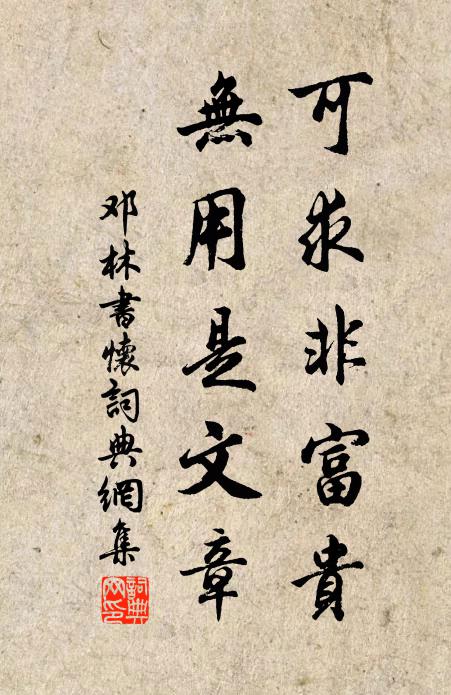 可求非富貴
無用是文章
邓林書懷詞典網集
詞典
网印